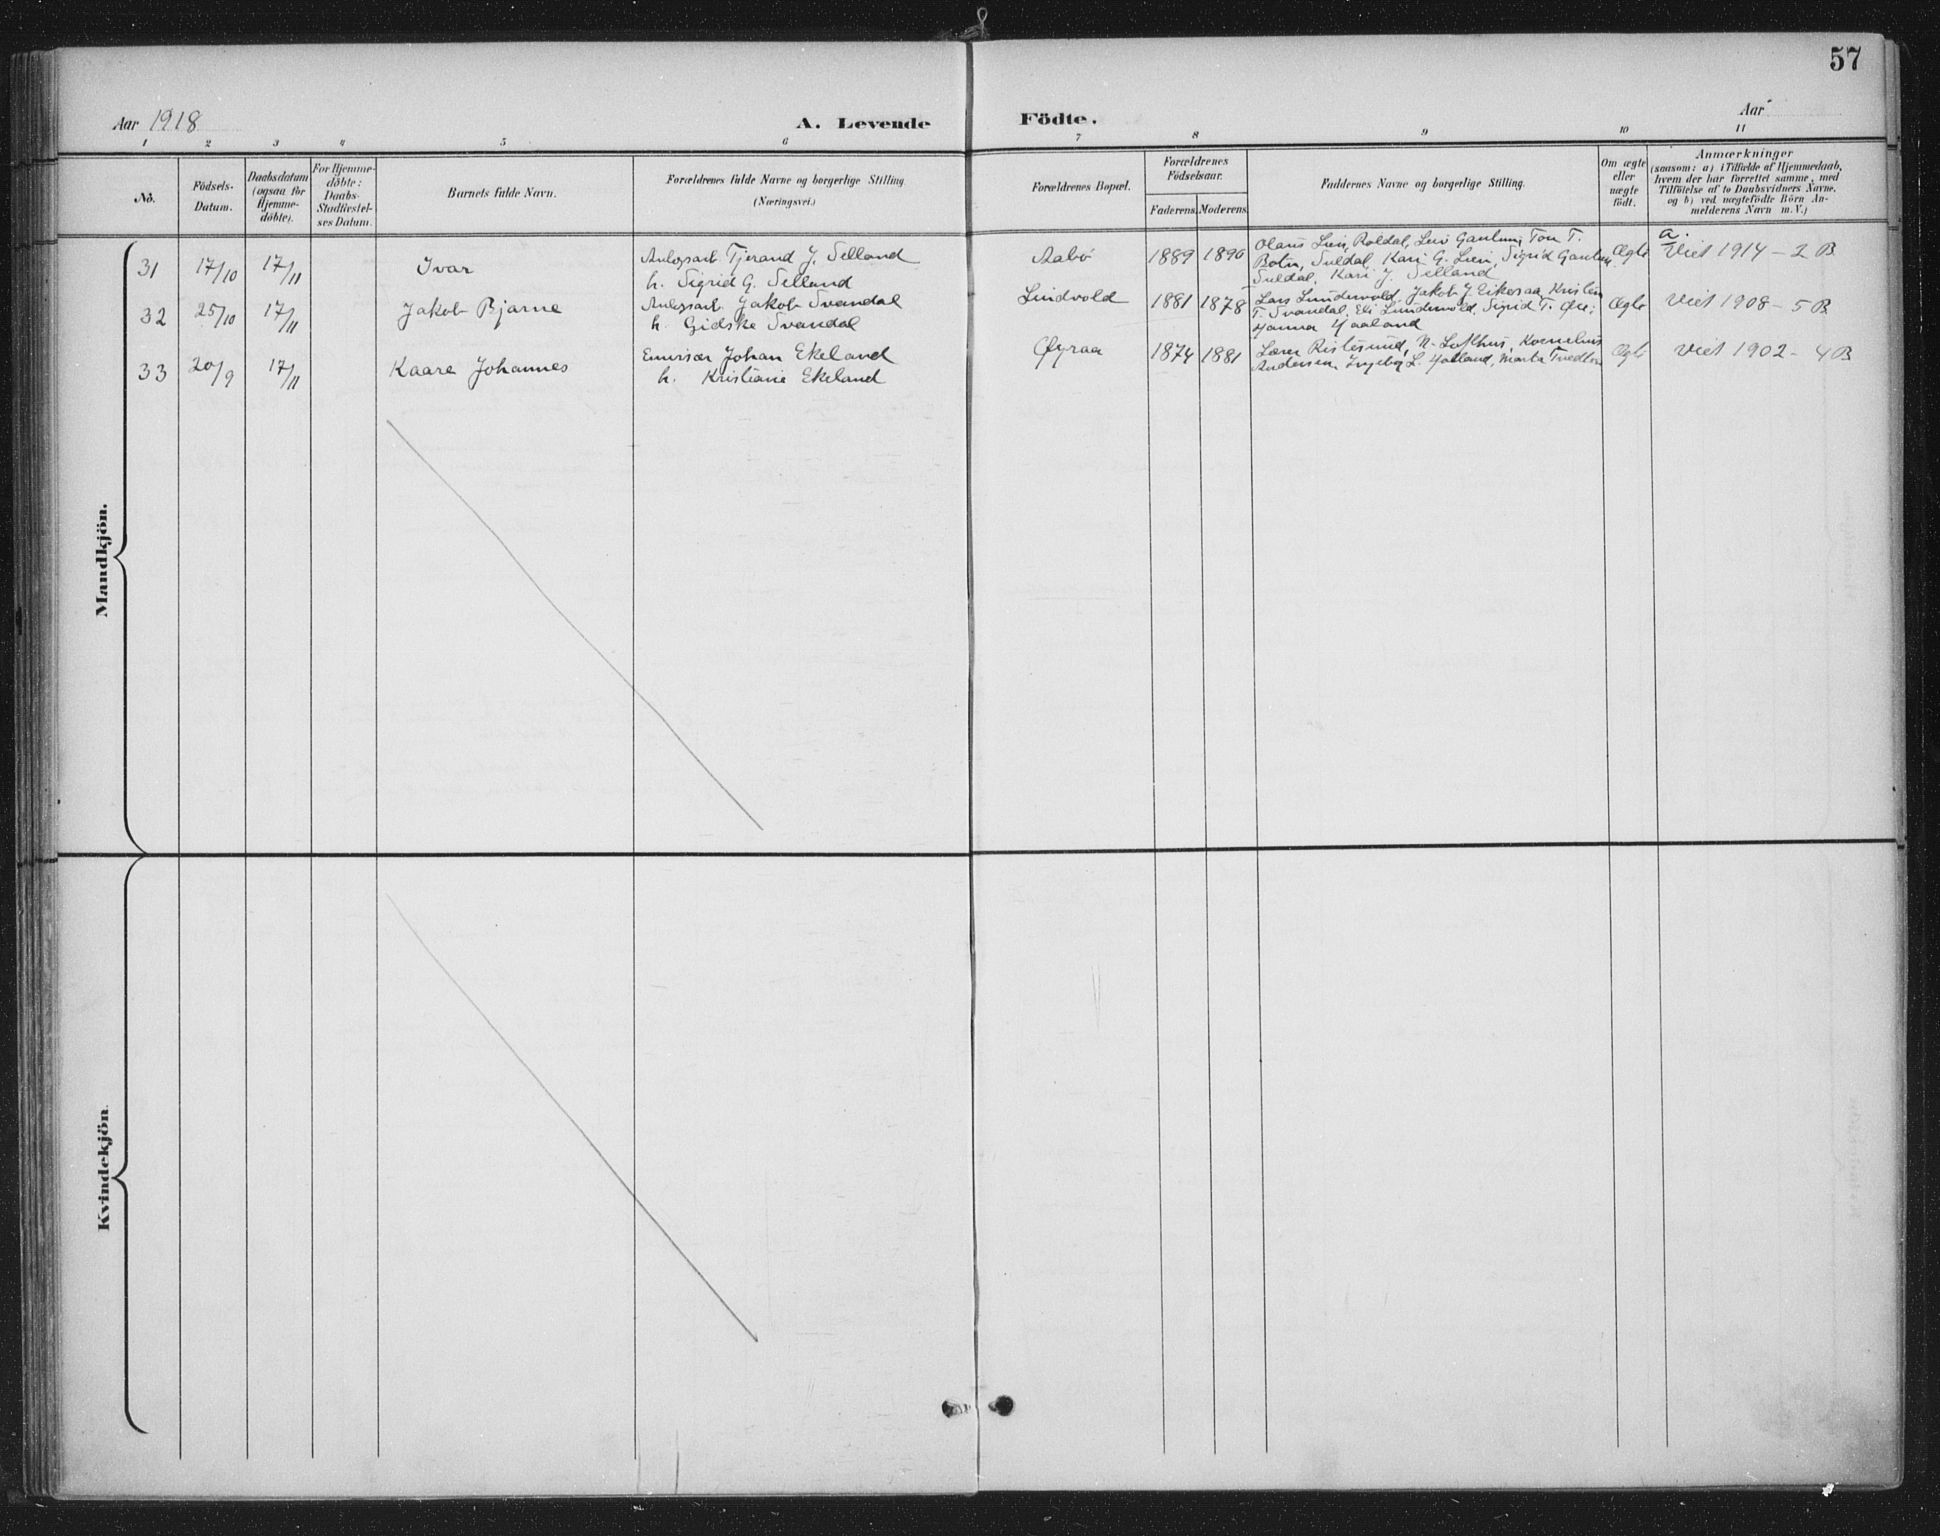 57
Aar 1918
A. Levende Födte.
Aar
1 2 3 4 5 6 7 8 9 10 11
No.
Födsels-Datum.
Daabsdatum (ogsaa for Hjemme-döbte).
For Hjemme-döbte: Daabs-Stadfæstel-ses Datum.
Barnets fulde Navn.
Forældrenes fulde Navne og borgerlige Stilling (Næringsvei.)
Forældrenes Bopæl.
Forældrenes Födselsaar.
Faderens. Moderens.
Faddernes Navne og borgerlige Stilling.
Om ægte eller uægte födt.
Anmærkninger
(saasom: a) i Tilfælde af Hjemmedaab,
hvem der har forrettet samme, med
Tilföielse af to Daabsvidners Navne,
og b) ved uægtefödte Börn An-
melderens Navn m. V.)
Mandkjön.
31 17/10 17/11 Ivar
Anlegsarb. Tjerand J. Selland
h. Sigrid G. Selland
Aabø 1889 1890
Olaus Lien, Roldal, Leiv Gautun, Tor T.
Botn, Suldal, Kari G. Lien, Sigrid Gautun
Suldal, Kari J. Selland
Ægte
a.
Viet 1914 - 2 B
32 25/10 17/11 Jakob Bjarne
Anlegsarb. Jakob Svandal
h. Gidske Svandal
Lindvold 1881 1878
Lars Lundervold, Jakob J. Eikesaa, Kristen
T. Svandal, Eli Lundevold, Sigrid T.
Hanna Haaland
Ægte
Viet 1908 - 5 B
33 20/9 17/11 Kaare Johannes
Emissær Johan Ekeland
h. Kristiane Ekeland
Øyraa 1874 1881
Lærer Ristesund, N. Lofthus, Kornelius
Andersen, Ingeborg L. Holland, Marta Tvedten
Ægte
Viet 1902 - 4 B
Kvindekjön.